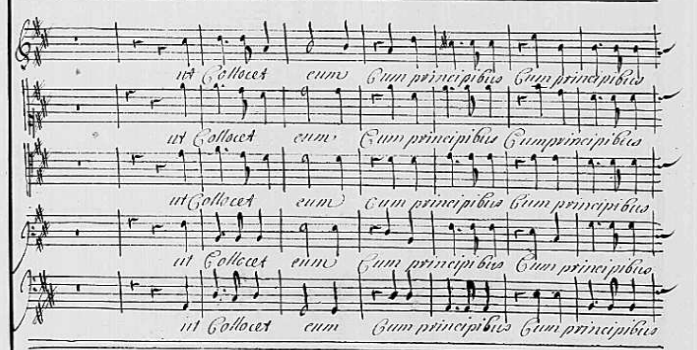 ut Collocet eum Cum principibus Cum principibus
ut Collocet eum Cum principibus Cum principibus
ut Collocet eum Cum principibus Cum principibus
ut Collocet eum Cum principibus Cum principibus
ut Collocet eum Cum principibus Cum principibus